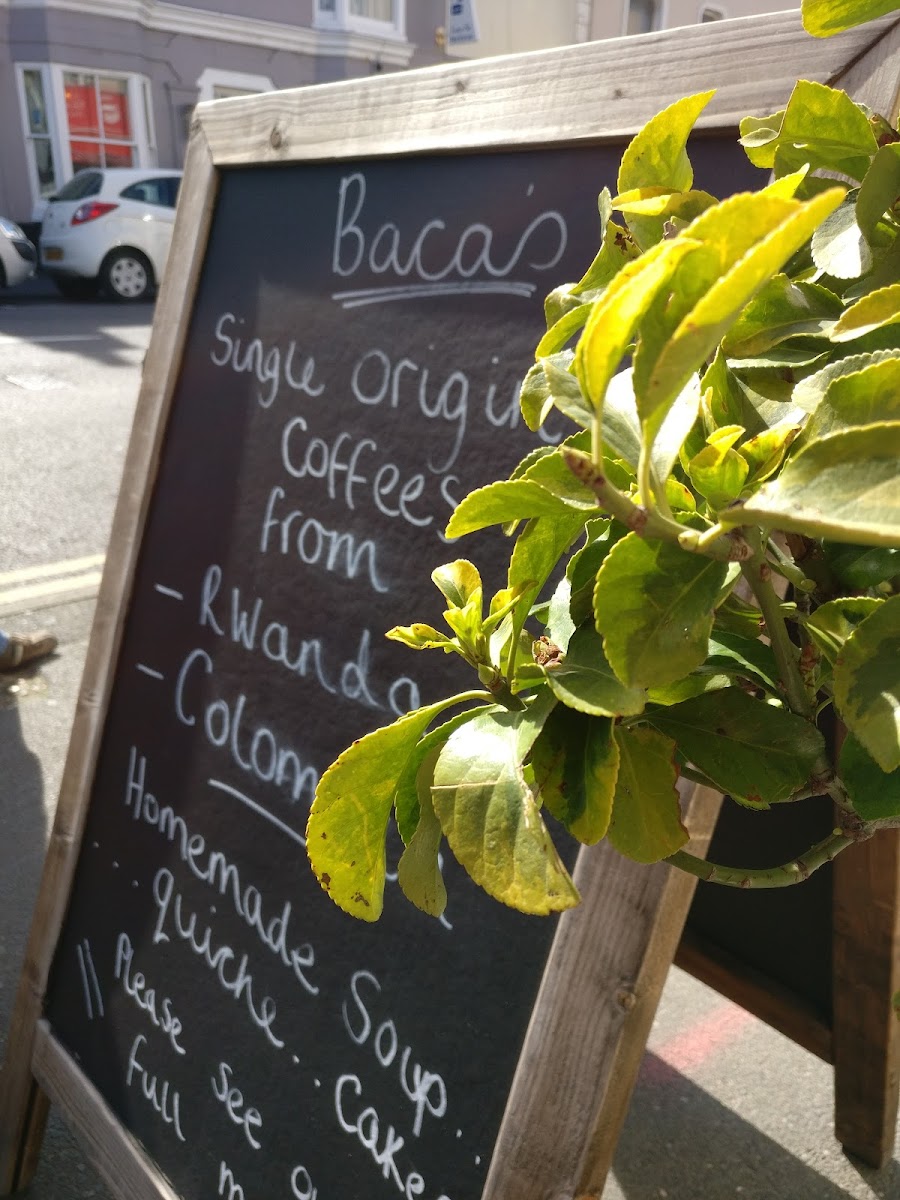 Baca's
Single Origin
Coffees
from
- Rwanda
- Colom
Homemade Soup.
.. Quiche.. Cake
Please see
full